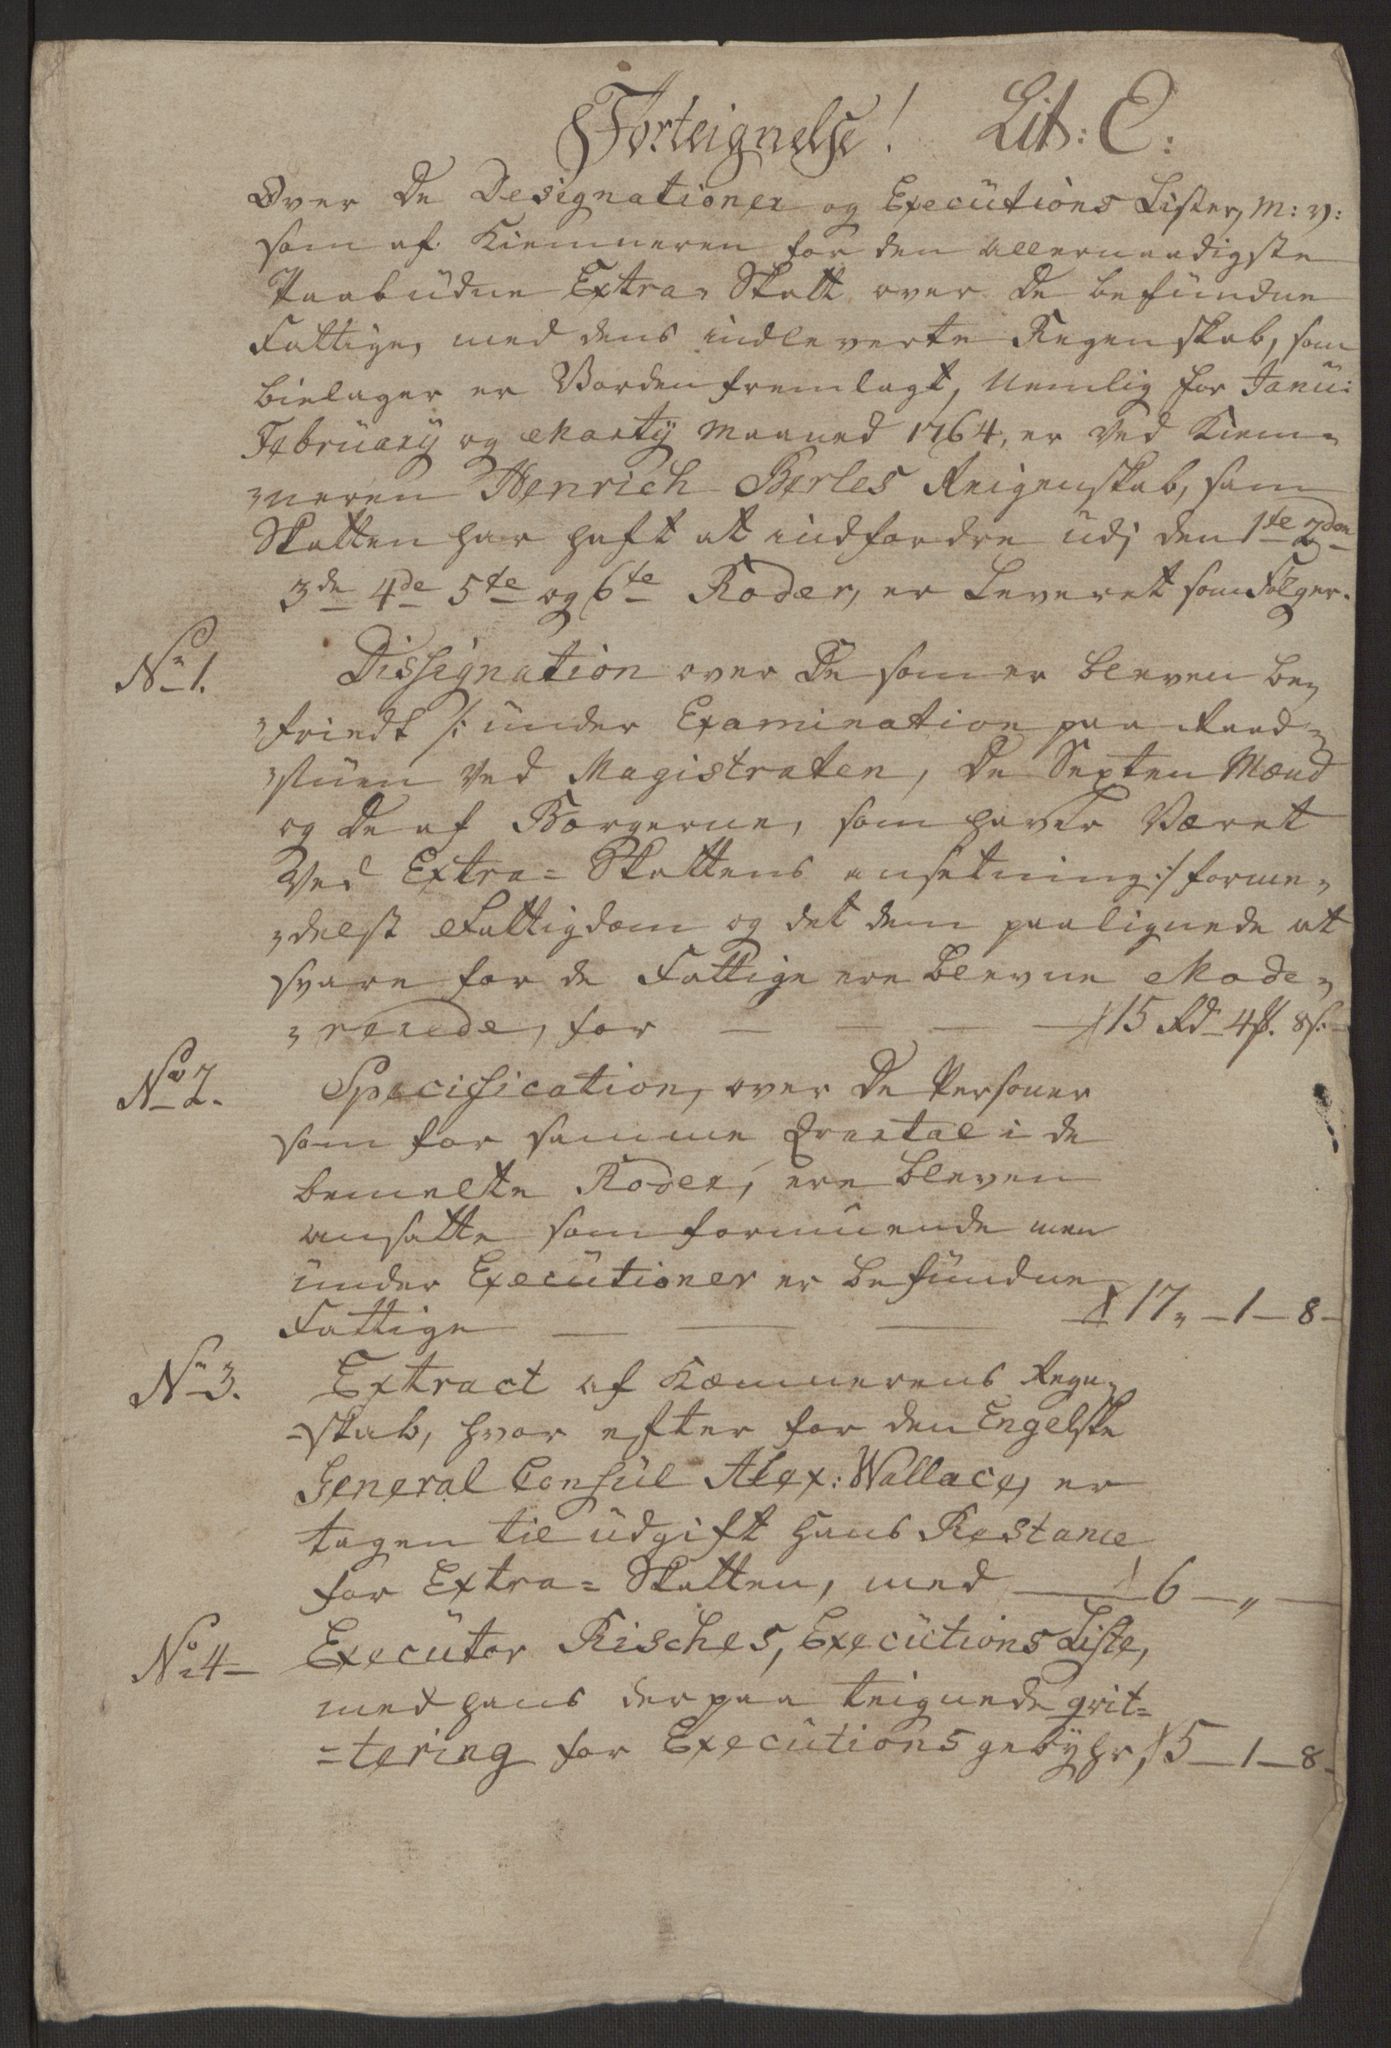 Forteignelse! Lit: C:
Over De Designationer og Executions Lister, M: V:
som af Kiemneren for den allernaadigste
Paabudne Extra- Skatt over de befundne
Fattige, med dens indleverte Regenskab, som
bielager er Vorden fremlagt, Nemlig for Janu:
February og Marty Maaned 1764, er Ved Kiem-
-neren Henrich Berles Reigenskab, som
Skatten har haft at indfordre udj den 1te 2den
3de 4de 5te og 6te Roder, er Leveret som Følger.
No 1. Dissignation over De som er bleven be-
-friedt /: under Examination paa Raad-
-stuen Ved Magistraten, De Sexten Mænd
og De af Borgerne, som haver Været
Ved Extra= Skattens ansetning :/ forme-
-delst Fattigdom og det dem paalignede at
svare for de Fattige ere blevne Mode-
-rerede, for 15 Rd 4 ß. 8 s:
No 2. Specification, over De Personer
som for samme Qvartal i de
bemelte Roder, ere bleven
ansatte som formuende men
under Executioner er befundne
Fattige 17 „ - 1 - 8 -
No 3. Extract af Kæmnerens Regn-
=skab, hvor efter for den Engelske
General Consul Alex: Wallace, er
tagen til udgift hans Restance
for Extra= Skatten, med 6 - „ -
No 4 - Executor Risches, Executions Liste,
med hans derpaa teignede qvit=
=tering for Executions gebyhr, 5 - 1 - 8 -